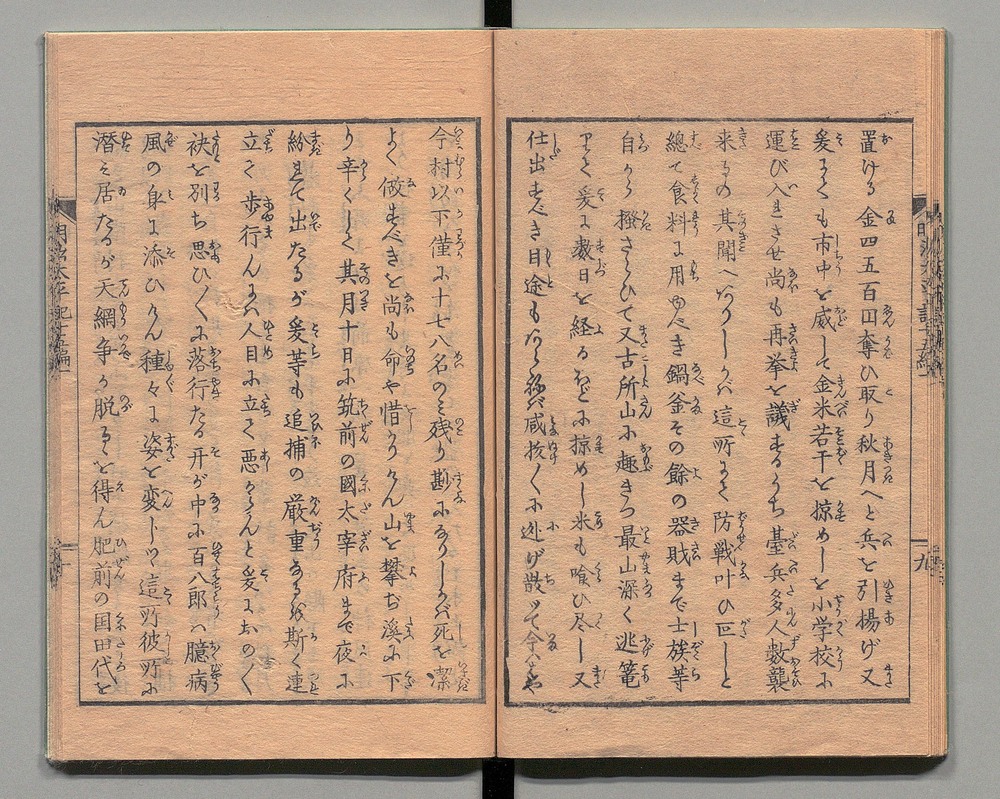 置ける金四五百円奪ひ取り秋月へと兵を引揚げ又
爰にても市中を威して金米若干を掠めしを小学校に
運び入させ尚も再挙を議するうち臺兵多人数襲
来るの其聞へありしかバ這所にて防戦叶ひ叵しと
總て食料に用ゆべき鍋釜その餘の器財まで士族等
自から擔さらひて又古所山に趣きつ最山深く逃篭
りて爰に数日を経るほどに掠めし米も喰ひ尽し又
仕出すべき目途もなけれバ咸抜〱に迯げ散つて今ハはや
今村以下僅に十七八名のミ残り尠になりしかバ死を潔
よく做すべきを尚も命や惜かりけん山を攀ぢ溪に下
り辛くして其月十日に筑前の國太宰府まで夜に
紛れて出たるが爰等も追捕の厳重なるを斯く連
立て歩行んにハ人目に立て悪かりなんと爰におの〱
袂を別ち思ひ〱に落行たる开が中に百八郎ハ臆病
風の身に添ひけん種々に姿を変じツヽ這所彼所に
潜ミ居たるが天網争か脱るゝを得ん肥前の国田代を
明治太平記十五編
九